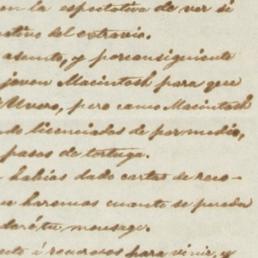 en la espectativa de ver si
ativo del extravio.
asunto, y por consiguiente
joven Macintosh para que
Utuero, pero como Macintosh
de licenciados de por medio,
pasos de tortuga.
habias dado cartas de reco-
haremos cuanto se pueda
tu mensage.
para vivir, y